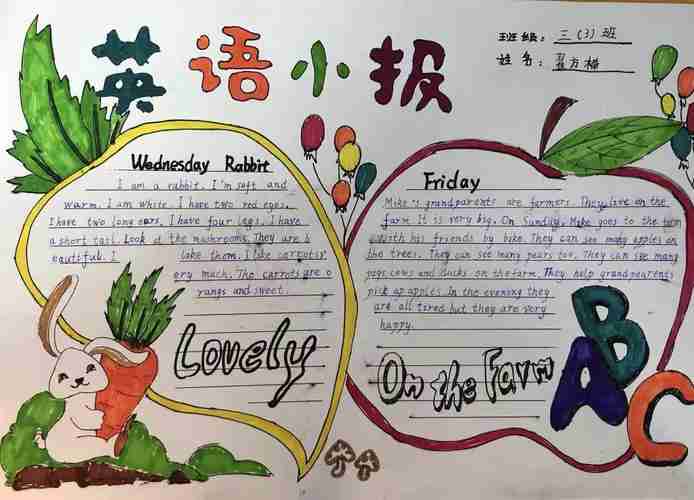 英语小报
班级：三(3)班
姓名：翟方
Wednesday Rabbit
I am a rabbit. I'm soft and
warm. I am white. I have two red eyes.
I have two long ears. I have four legs. I have
a short tail. Look at the mushrooms. They are b
eautiful. I like them. I like carrots v
ery much. The carrots are o
rangs and sweet.
Lovely
Friday
Mike's grandparents are farmers. They live on the
farm. It is very big. On Sunday, Mike goes to the farm
with his friends by bike. They can see many apples on
the trees. They can see many pears too. They can see many
pigs cows and ducks on the farm. They help grandpearents
pick up apples. In the evening they
are all tired but they are very
happy.
On the Farm
A B C